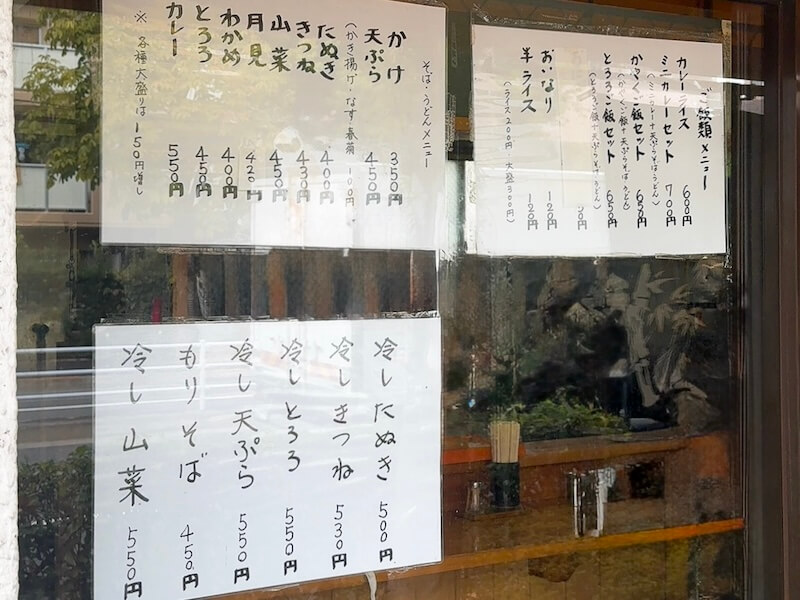 そば・うどんメニュー
かけ 350円
天ぷら 450円
(かき揚げ・なす・春菊 100円)
たぬき 400円
きつね 430円
山菜 450円
月見 420円
わかめ 400円
とろろ 450円
カレー 550円
※ 各種大盛りは150円増し
ご飯類メニュー
カレーライス 600円
ミニカレーセット 700円
(ミニカレー+天ぷらそばうどん)
かやくご飯セット 650円
(かやくご飯+天ぷらそばうどん)
とろろご飯セット 650円
(とろろご飯+天ぷらそばうどん)
おいなり 120円
半ライス 120円
(ライス200円 大盛300円)
冷したぬき 500円
冷しきつね 530円
冷しとろろ 550円
冷し天ぷら 550円
もりそば 450円
冷し山菜 550円